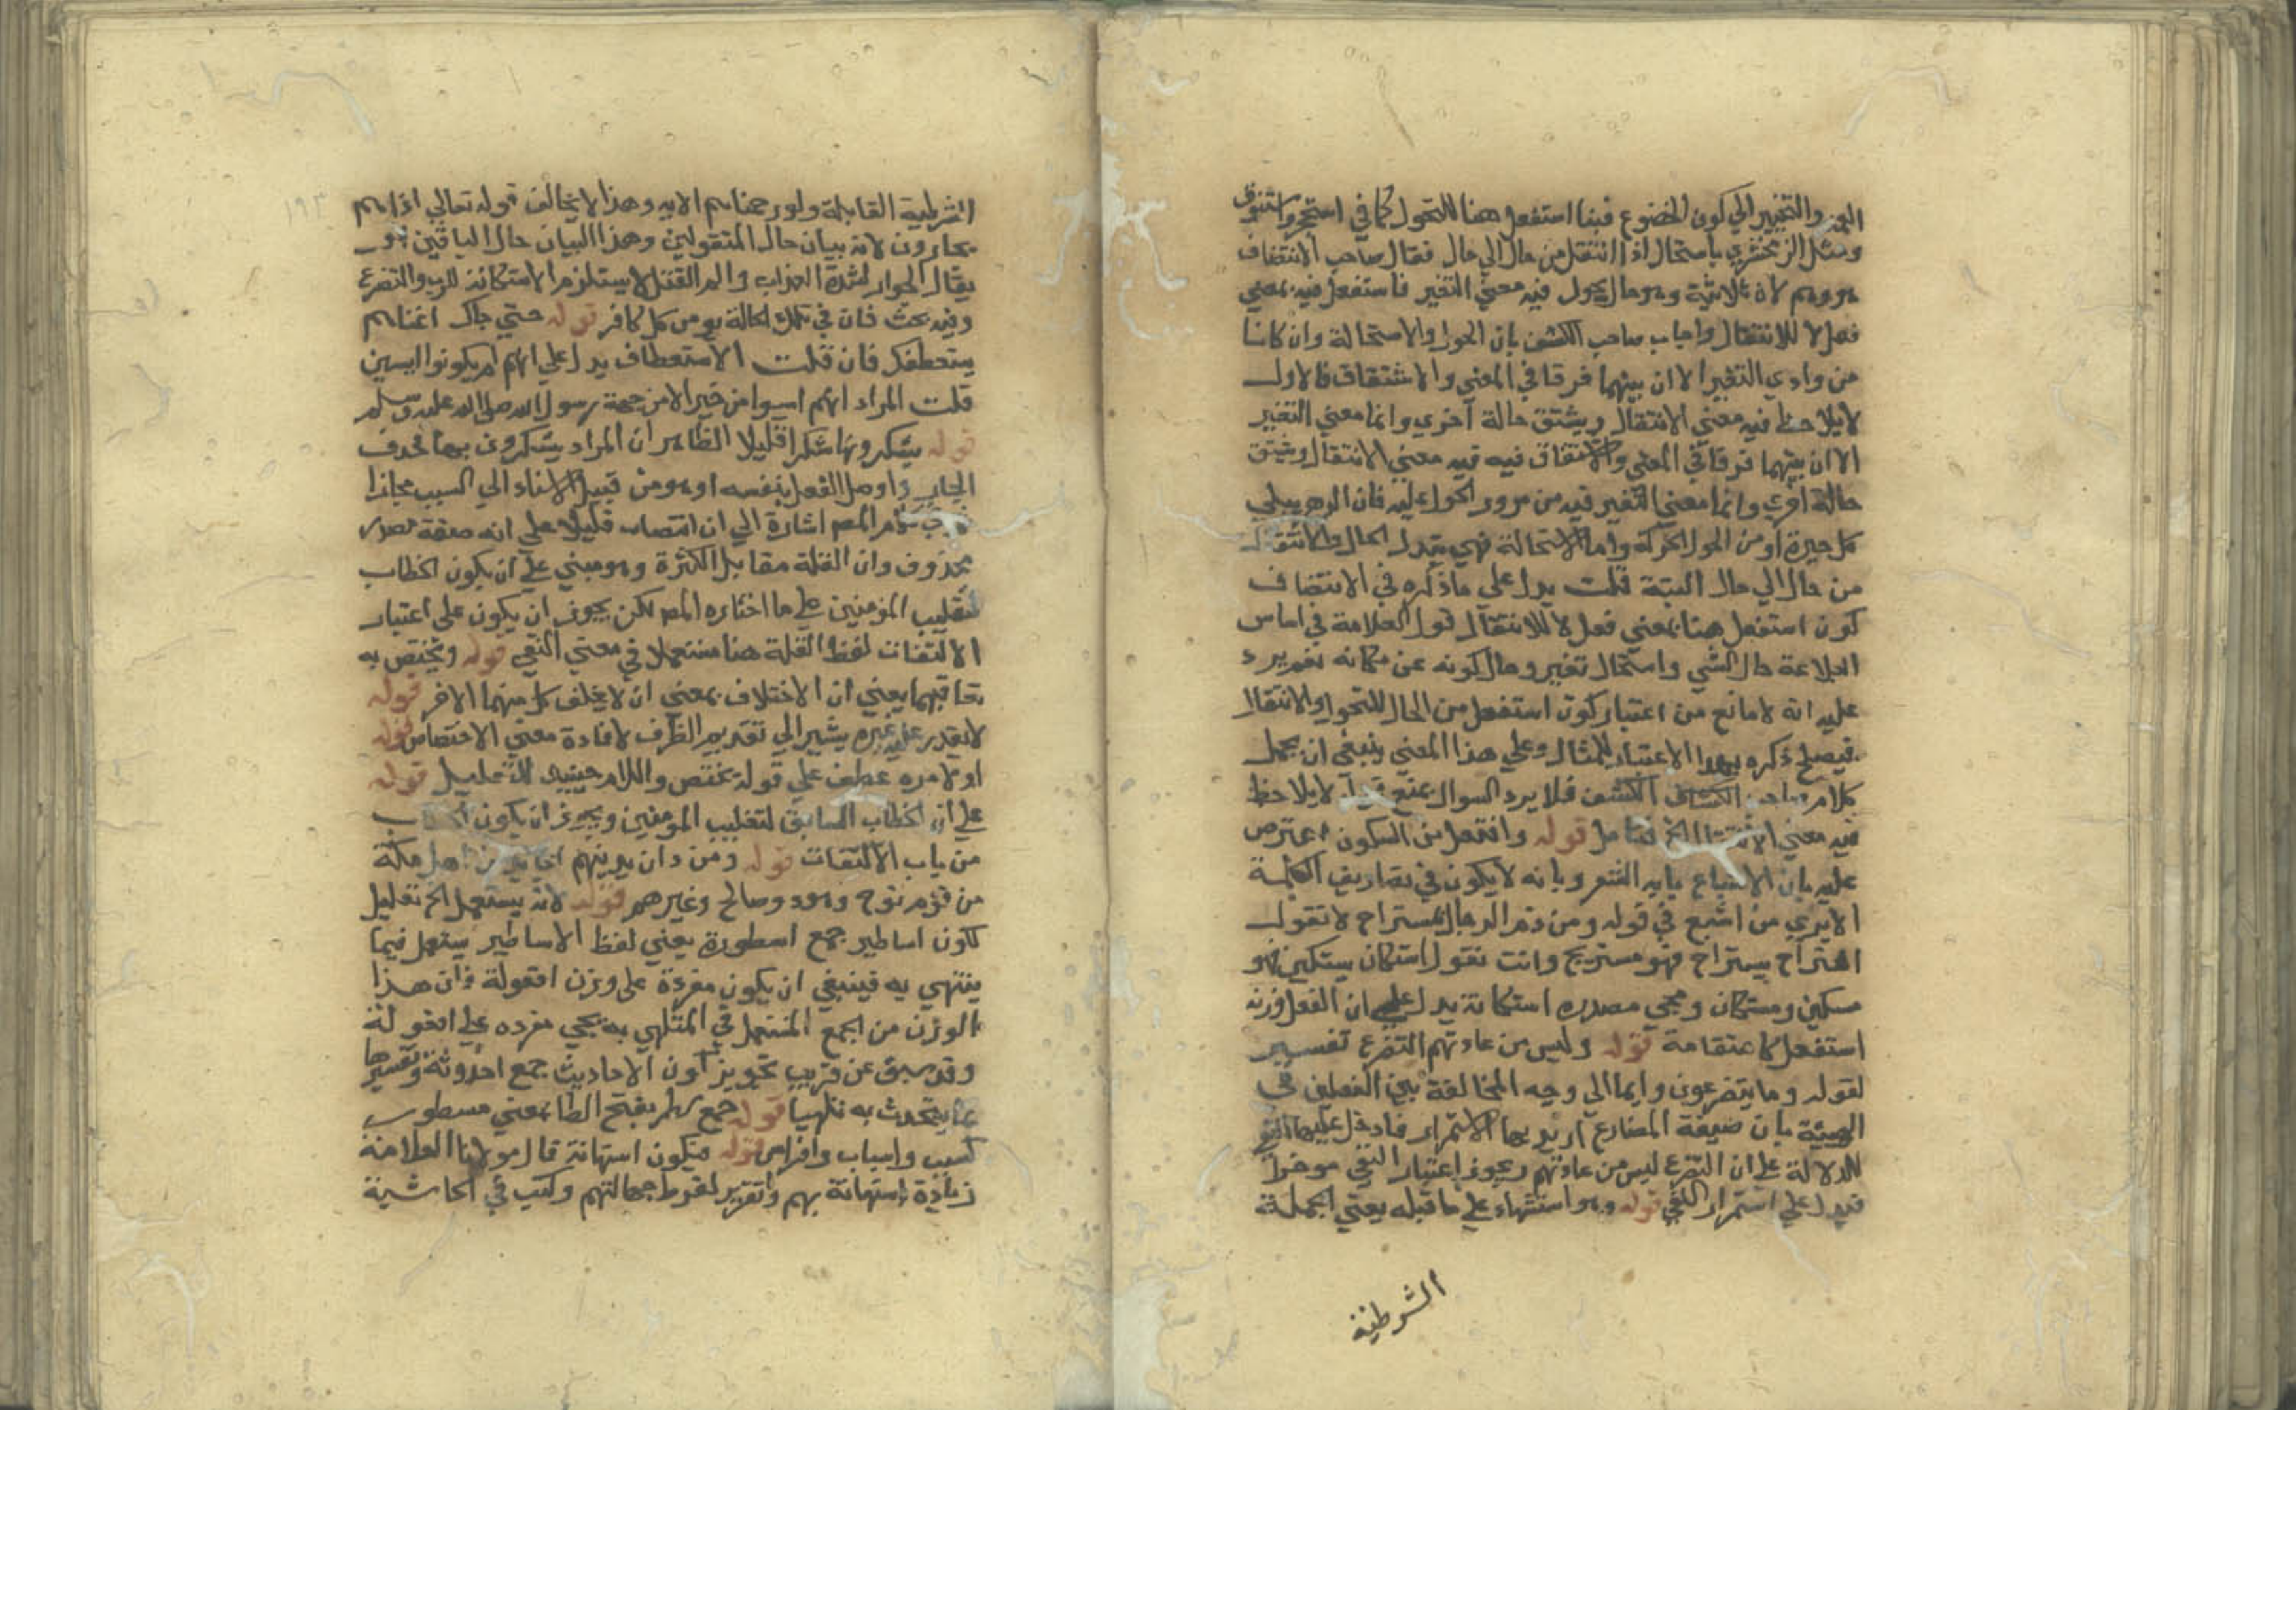 والتغيير الي كون الخضوع فبنا استفعل هنا للتحول كما في استحجر واستنوق
ومثل الزمخشري باستحال اذا انتقل من حال الي حال فقال صاحب الانتصاف
هو وهم لان ثلاثية وهو حال يحول فيه معني التغير فاستفعل فيه بمعني
فعل لا للانتقال واجاب صاحب الكشف بان الحول والاستحالة وان كانا
من وادي التغير الا ان بينهما فرقا في المعني والاشتقاق فالاول
لا يلاحظ فيه معني الانتقال ويشتق حالة اخري وانما معني التغير
الا ان بينهما فرقا في المعني والاشتقاق فيه قيه معني الانتقال
حالة اخري وانما معني التغير فيه من مرور الحول عليه فان الدهر يبلي
كل جدة او من الحول الحركة واما الاستحالة فهي تبدل الحال والانتقال
من حال الي حال البتة قلت يدل علي ما ذكره في الانتصاف
كون استفعل هنا بمعني فعل لا للانتقال قول العلامة في اساس
البلاغة حال الشي واستحال تغير وحال كونه عن مكانه نعم يرد
عليه انه لا مانع من اعتبار كون استفعل من الحال للتحول والانتقال
فيصلح ذكره بهذا الاعتبار للمثال وعلي هذا المعني ينبغي ان يحمل
كلام صاحب الكشاف الكشف فلا يرد السوال بمنع لا يلاحظ
فيه معني الانتقال الخ فتامل قوله وافتعل من السكون اعترض
عليه بان الاشباع بابه الشعر وبانه لا يكون في تصاريف الكلمة
الا يري من اشبع في قوله ومن ذم الرجال بمستراح لا تقول
استراح يستراح فهو مستريح وانت تقول استكان يستكين فهو
مسكين ومستكان ومجي مصدره استكانة يدل علي ان الفعل وزنه
استفعل كاستقامة قوله وليس من عادتهم التضرع تفسير
لقوله وما يتضرعون وايما الي وجه المخالفة بين الفعلين في
الهيئة بان صيغة المضارع اريد بها الاستمرار فادخل عليها النفي
للدلالة علي ان التضرع ليس من عادتهم ويجوز اعتبار النفي موخرا
فيدل علي استمرار النفي قوله وهو استشهاد علي ما قبله يعني الجملة
الشرطية
١٩٣
الشرطية القابلة ولو رحمناهم الايه وهذا لا يخالف قوله تعالي اذا هم
يجارون لانه بيان حال المقتولين وهذا البيان حال الباقين
يقال الجوار لشدة العذاب والم القتل لا يستلزم الاستكانة للرب والتضرع
وفيه بحث فان في تلك الحالة يومن كل كافر قوله حتي جاك اعتاهم
يستعطفك فان قلت الاستعطاف يدل علي انهم لم يكونوا ايسين
قلت المراد انهم ايسوا من خير الا من جهة رسول الله صلي الله عليه وسلم
قوله يشكرونها شكرا قليلا الظاهر ان المراد يشكرون بها فحذف
الجار واوصل الفعل بنفسه او هو من قبيل الاسناد الي السبب مجازا
كلام المصر اشارة الي ان انتصاب قليلا علي انه صفة مصدر
محذوف وان القلة مقابل الكثرة وهو مبني علي ان يكون الخطاب
لتغليب المؤمنين علي ما اختاره المصر لكن يجوز ان يكون علي اعتبار
الالتفات لفظ القلة هنا مستعملا في معني النفي قوله ويختص به
تعاقبهما يعني ان الاختلاف بمعني ان لا يخلف كل منهما الاخر قوله
لا يقدر عليه غيره يشير الي تقديم الظرف لافادة معني الاختصاص قوله
او لامره عطف علي قوله يختص واللام حينيذ للتعليل قوله
علي ان الخطاب السابق لتغليب المومنين ويجوز ان يكون
من باب الالتفات قوله ومن دان بدينهم اهل مكة
من قوم نوح وهود وصالح وغيرهم قوله لانه يستعمل الخ تعليل
لكون اساطير جمع اسطورة يعني لفظ الاساطير يستعمل فيما
ينتهي به فينبغي ان يكون مفرده علي وزن افعولة فان هذا
الوزن من الجمع المستعمل في المتلهي به يجي مفرده علي افعولة
وقد سبق عن قريب تجويز كون الاحاديث جمع احدوثة وتفسيرها
بما يتحدث به تلهيا قوله جمع سطر بفتح الطا بمعني مسطور
كسبب واسباب وافراس قوله فيكون استهانة قال مولانا العلامة
زيادة استهانة بهم وتقرير لفرط جهالتهم وكتب في الحاشية